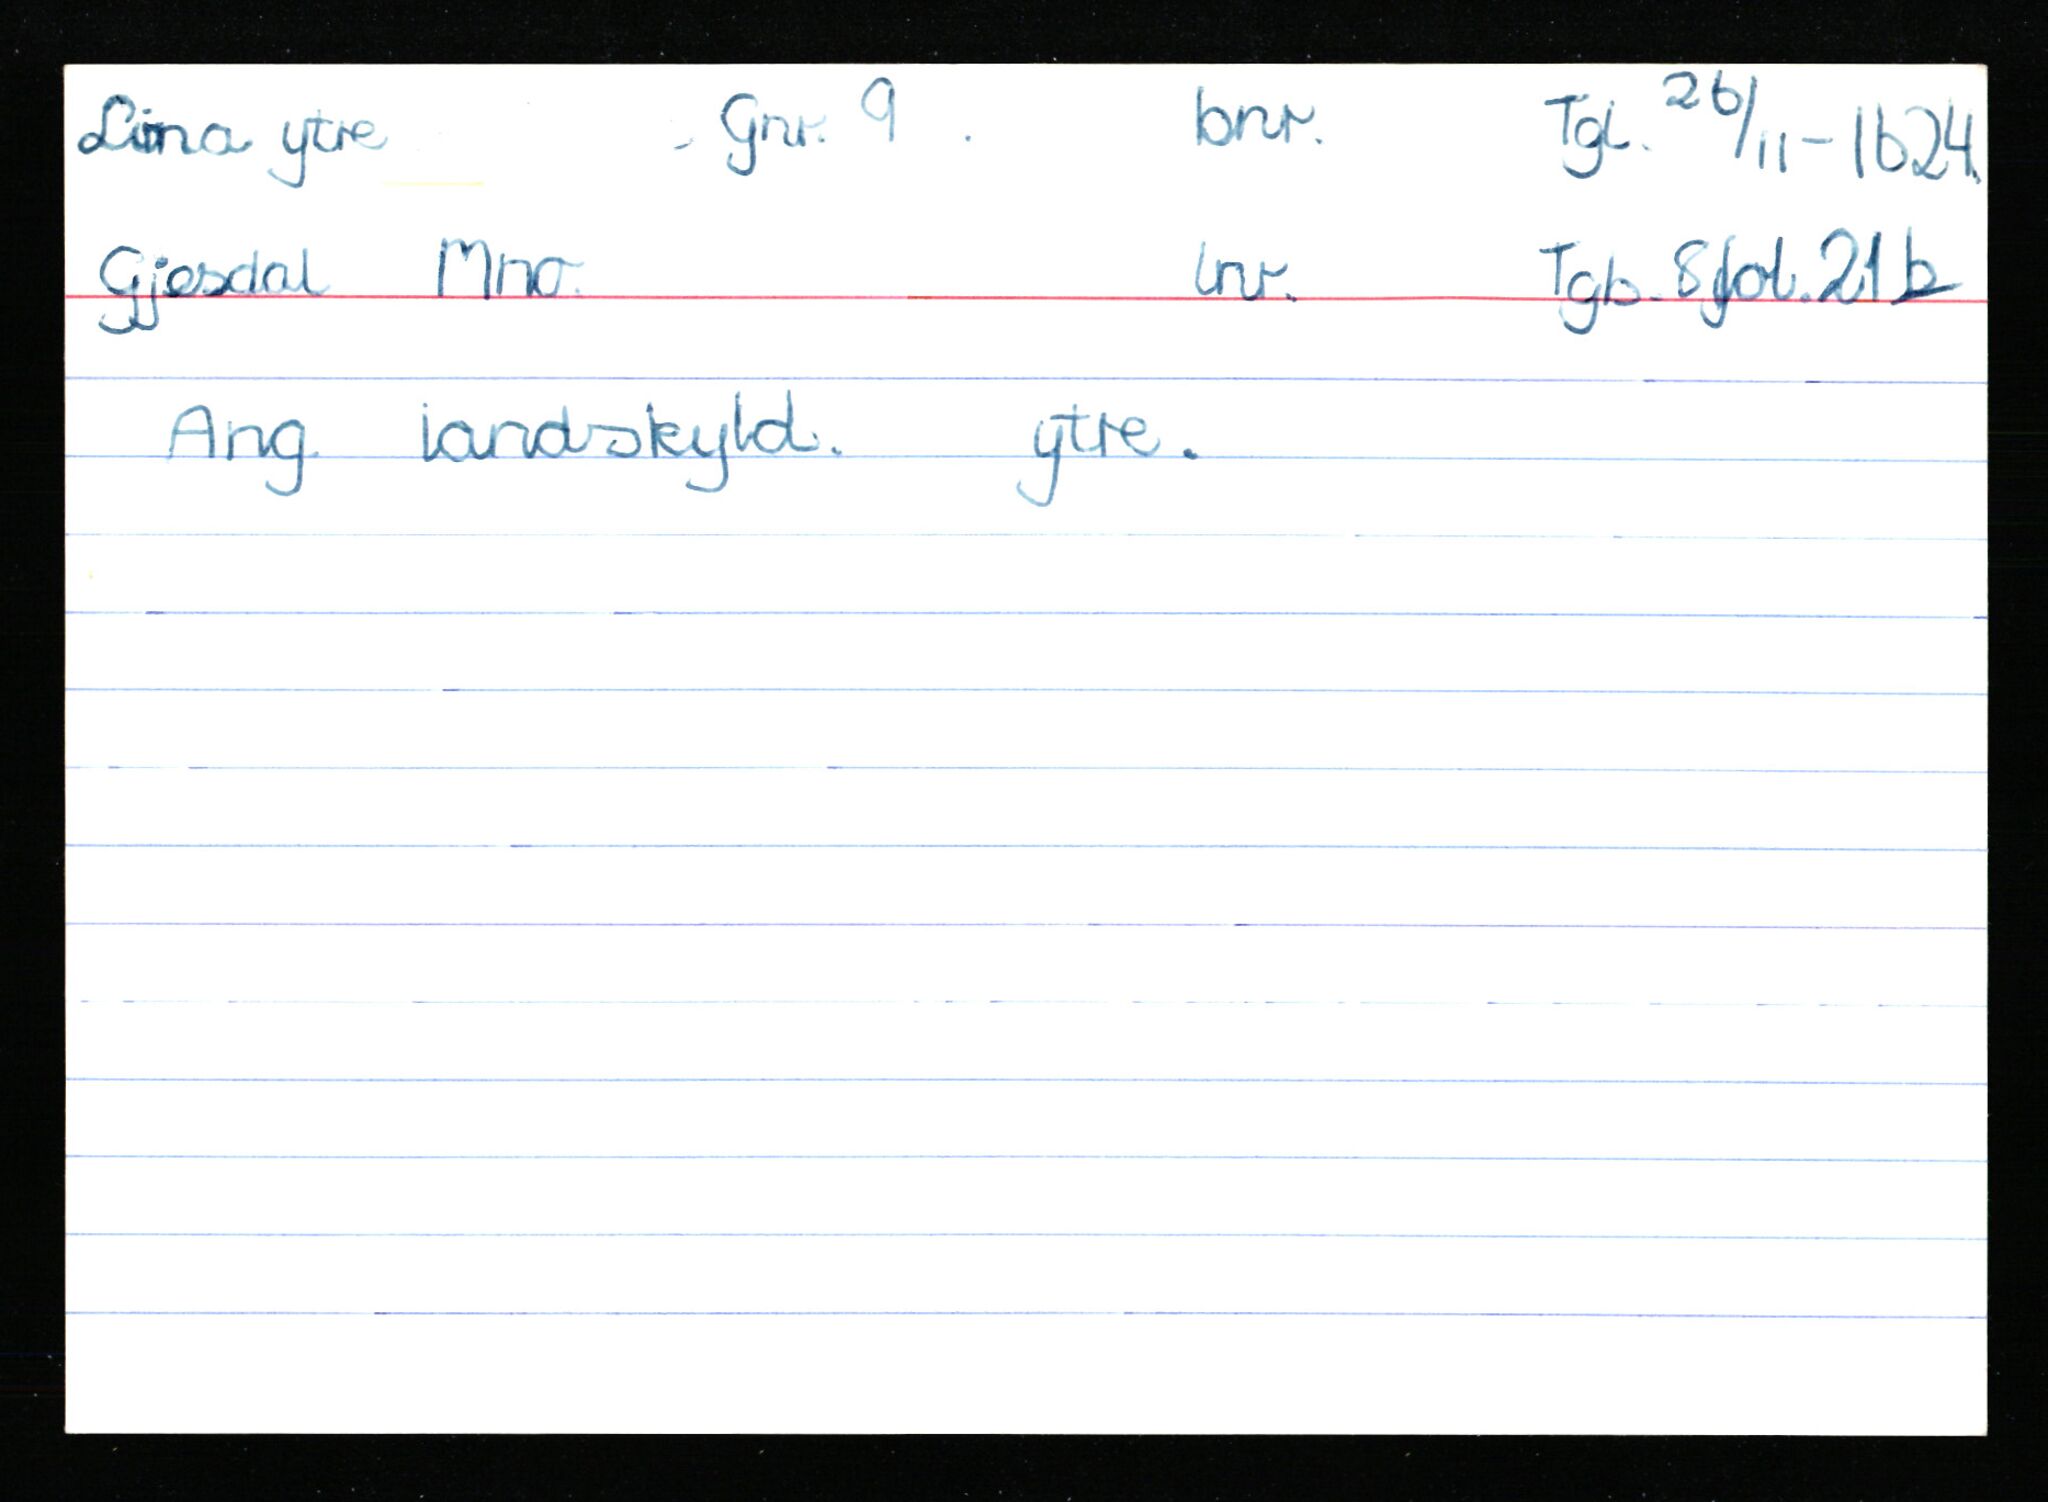 Lima ytre - Gnr. 9 . bnr. Tgl. 26/11-1624.
Gjesdal Mno. lnr. Tgb. 8 fol. 21b
Ang landskyld. ytre.